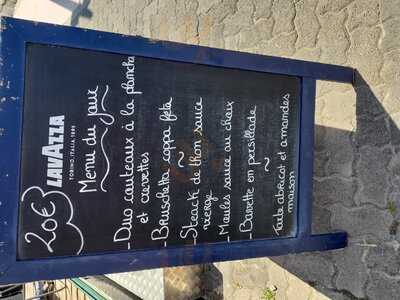 20€
LAVAZZA
TORINO, ITALIA, 1895
Menu du jour
-Duo couteaux à la plancha
et crevettes
-Bruschetta coppa feta
~
-Steack de thon sauce
vierge
-Moules sauce au choix
-Bavette en persillade
~
Tarte abricot et amandes
maison